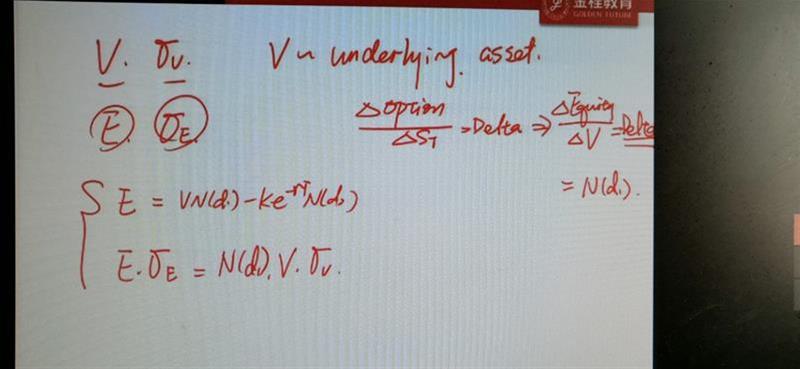 金程教育
GOLDEN FUTURE
V. σv. V ~ underlying asset.
E. σE. ΔOption/ΔST = Delta ⇒ ΔEquity/ΔV = Delta
= N(d1).
{ E = VN(d1) - Ke^-rT N(d2)
E.σE = N(d1).V.σv.